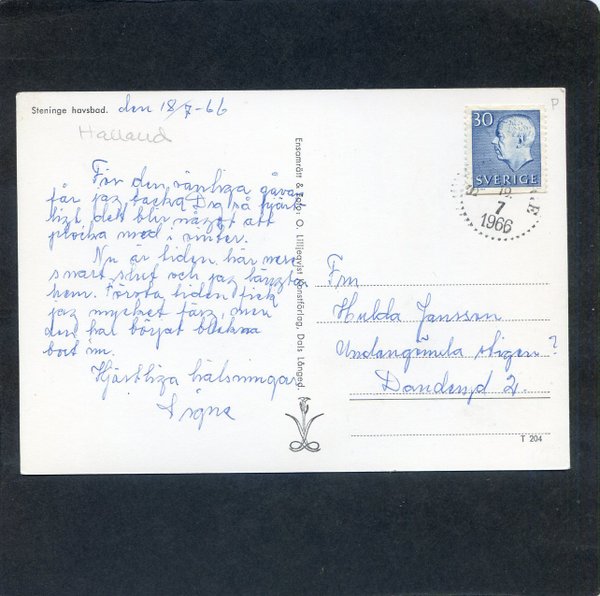 Steninge havsbad. den 18/7-66
Halland
För den vänliga gåvan
får jag tacka Dig så hjärt
ligt det blir något att
plocka med i vinter.
Nu är tiden här nere
snart slut och jag längtar
hem. Första tiden fick
jag mycket färg, men
den har börjat blekna
bort nu.
Hjärtliga hälsningar
Signe
Ensamrätt & foto: O. Lilljeqvist Konstförlag, Dals Långed.
30
SVERIGE
7
1966
P
Fru
Hulda Jansson
stigen?
Danderyd 2.
T 204